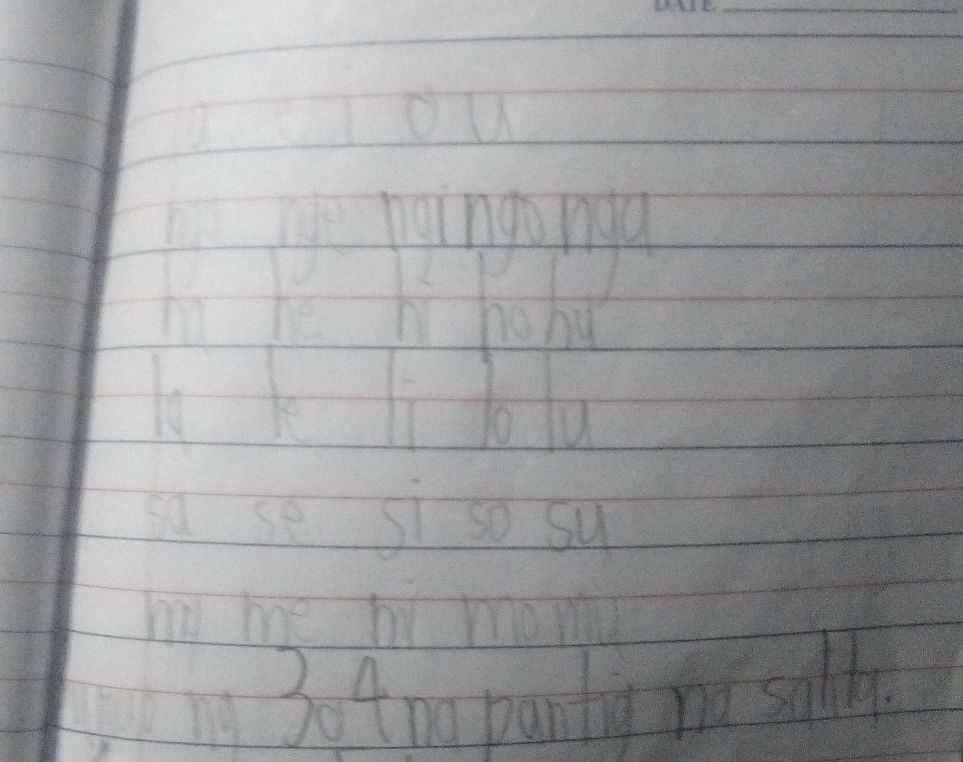 DATE
a e i o u
nga nge ngi ngo ngu
ha he hi ho hu
la le li lo lu
sa se si so su
ma me mi mo mu
ng 3 o 4 na pantig na salita.